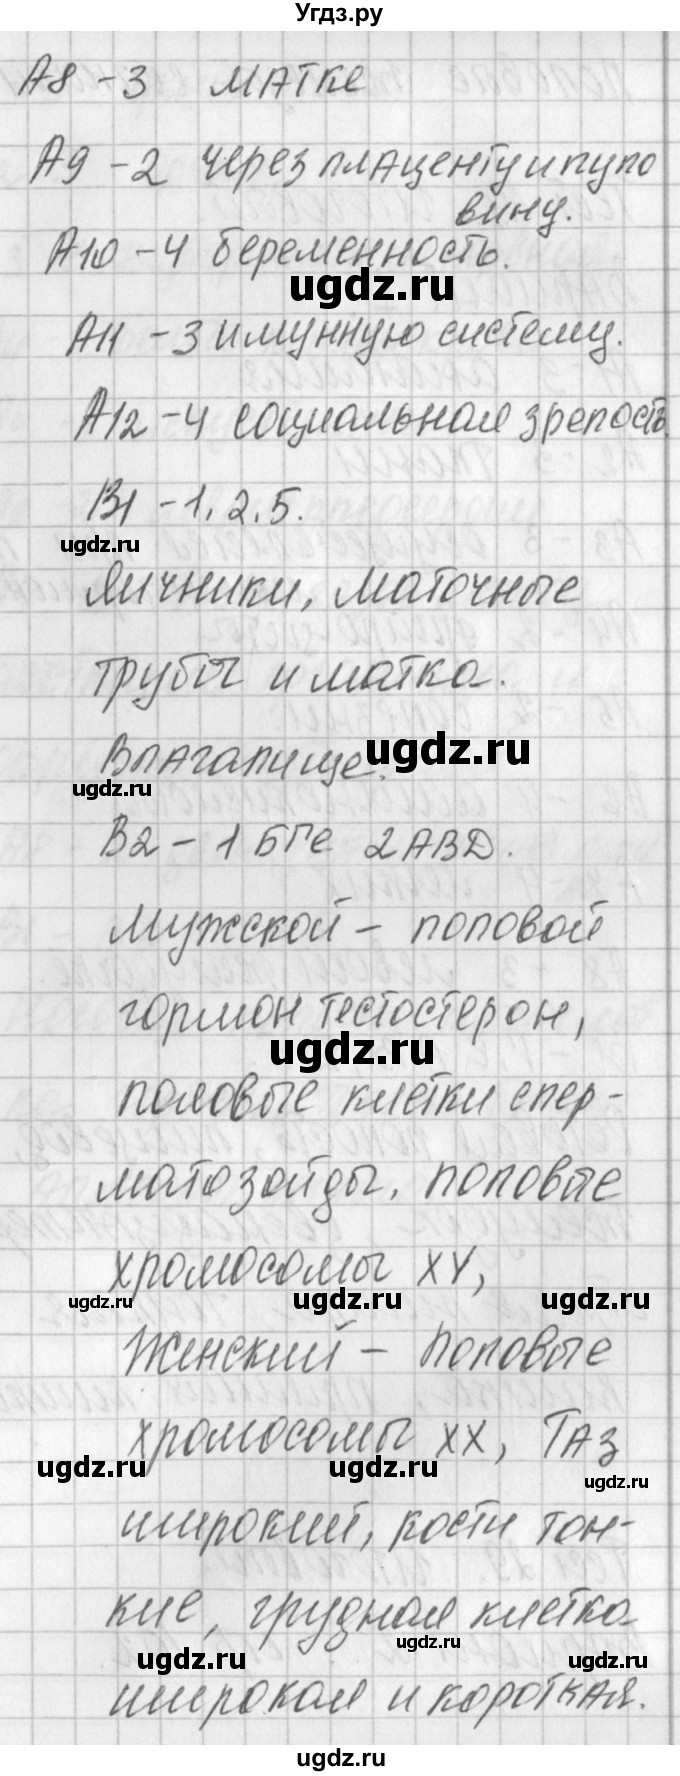 Угдз.ру
А8 - 3 матке
А9 - 2 через плаценту и пупо
вину.
А10 - 4 беременность.
ugdz.ru
А11 - 3 имунную систему.
А12 - 4 социальная зрелость.
В1 - 1, 2, 5.
ugdz.ru
Яичники, маточные
трубы и матка.
Влагалище.
ugdz.ru
ugdz.ru
В2 - 1 БГЕ 2АВД.
Мужской - половой
гормон тестостерон,
ugdz.ru
половые клетки спер-
матозойды, половые
хромосомы XY,
ugdz.ru ugdz.ru ugdz.ru
Женский - половые
хромосомы XX, Таз
ugdz.ru ugdz.ru ugdz.ru
широкий, кости тон-
кие, грудная клетка
ugdz.ru ugdz.ru ugdz.ru
широкая и короткая.
ugdz.ru